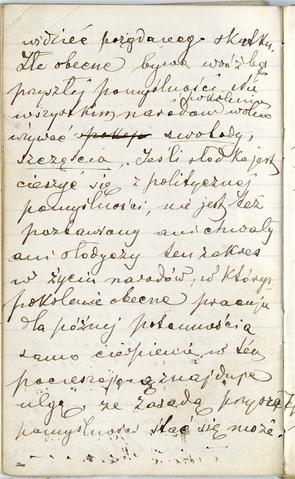 widzieć pożądanego skutku.
Złe obecne bywa wróżbą
przyszłej pomyślności. Nie
wszystkim narodom wolno
używać spokoju swobody,
szczęścia. Jeśli słodka jest
cieszyć się z politycznej
pomyślności, nie jest też
pozbawiony ani chwały
ani słodyczy ten zakres
w życiu narodów, w którym
pokolenie obecne pracuje
dla późnej potomności
samo cierpienie w tej
znajduje
ulgę że zasadą przyszłej
pomyślności stać się może.